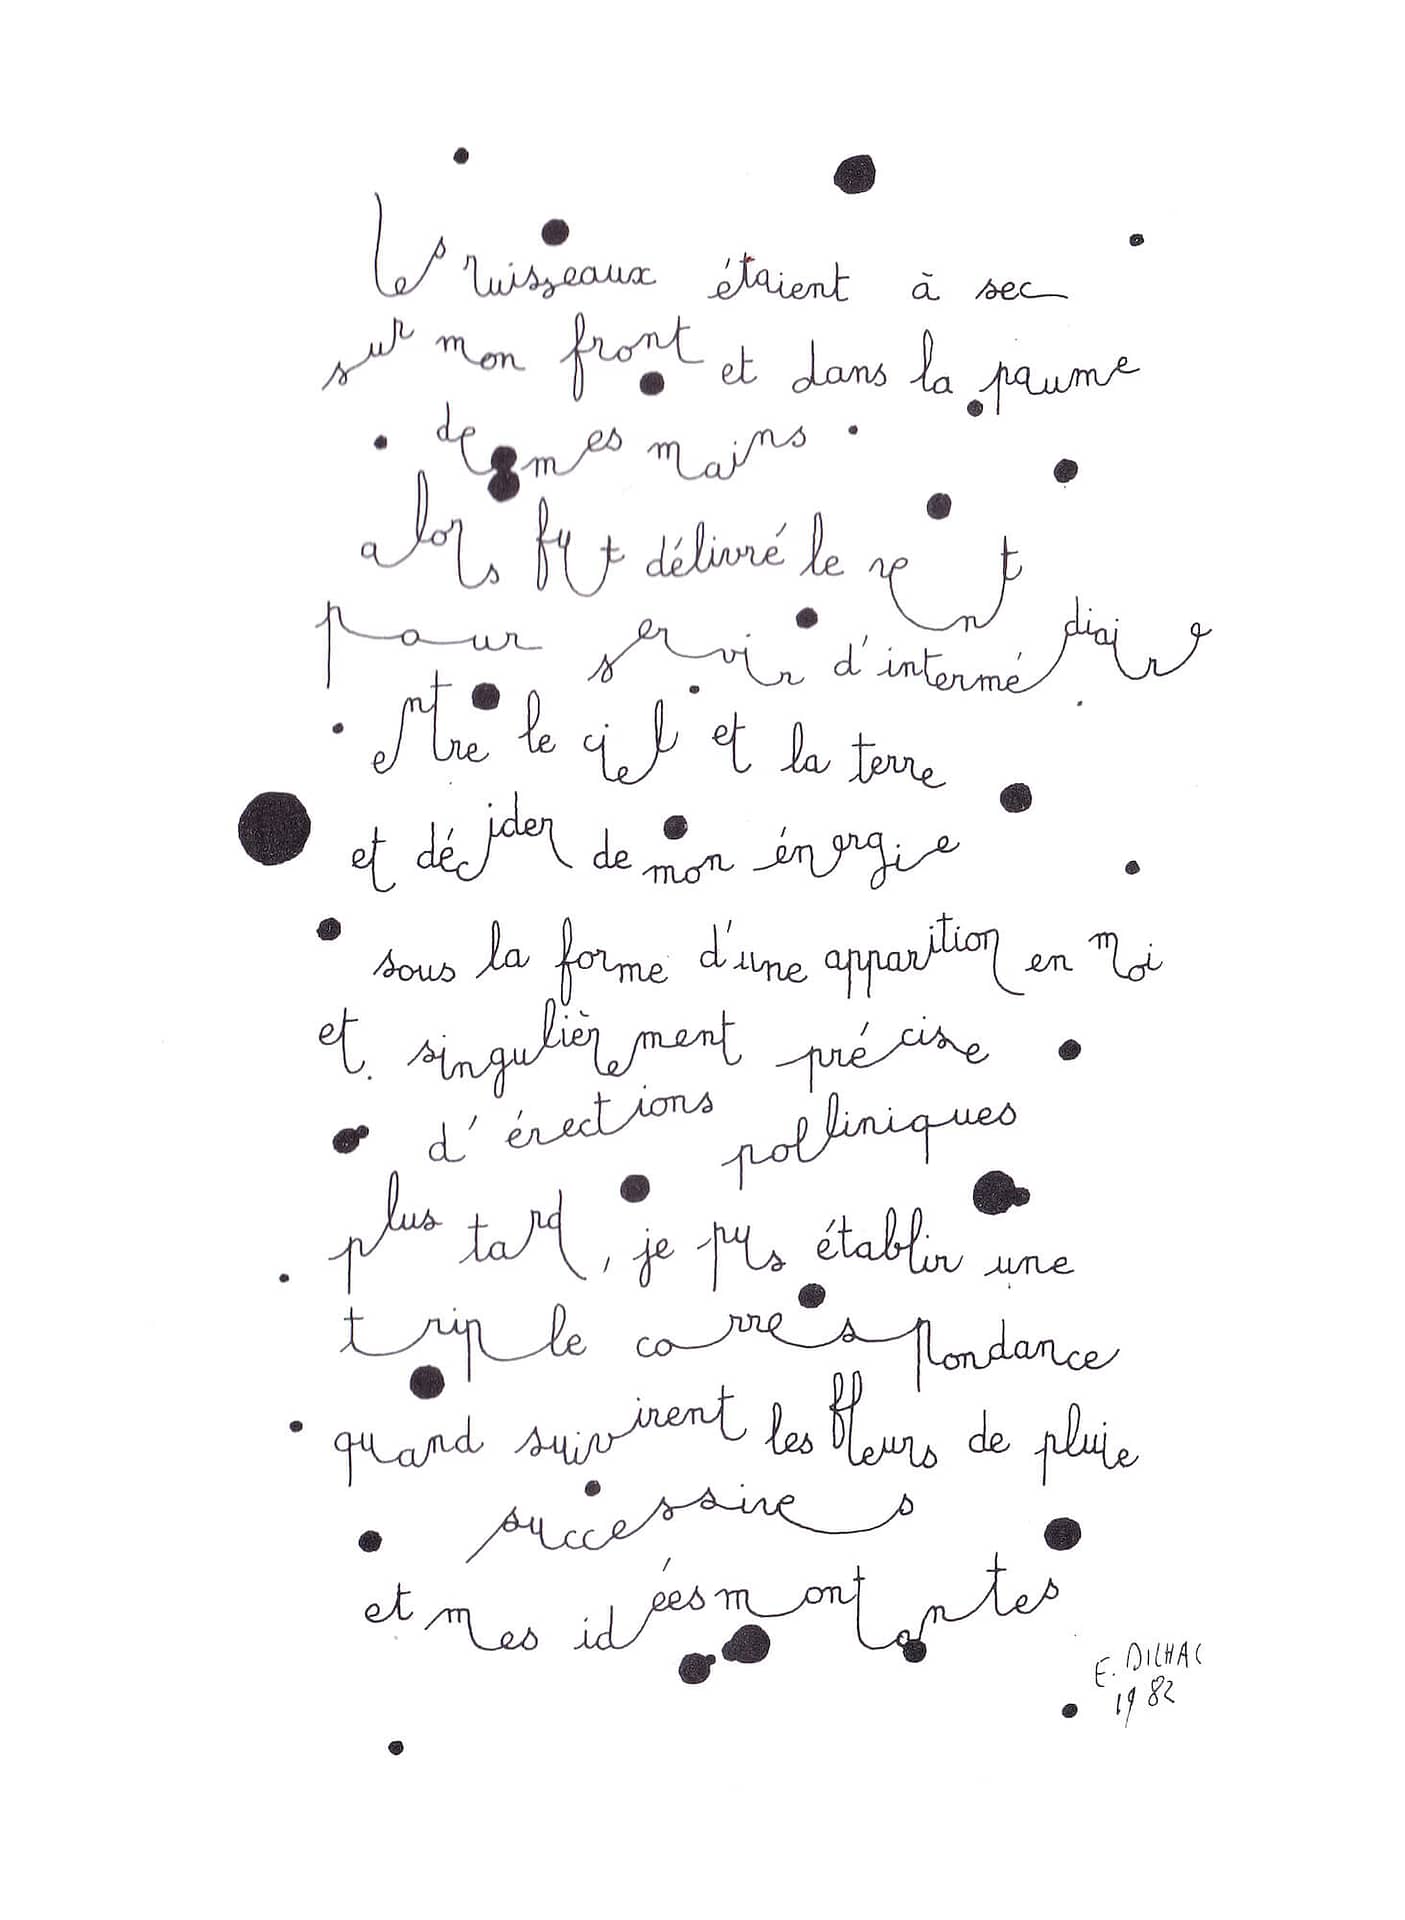 les ruisseaux étaient à sec
sur mon front et dans la paume
de mes mains
alors fut délivré le vent
pour servir d'intermédiaire
entre le ciel et la terre
et décider de mon énergie
sous la forme d'une apparition en moi
et singulièrement précise
d'érections polliniques
plus tard, je pus établir une
triple correspondance
quand suivirent les fleurs de pluie
successives
et mes idées montantes
E. DILHAC
1982